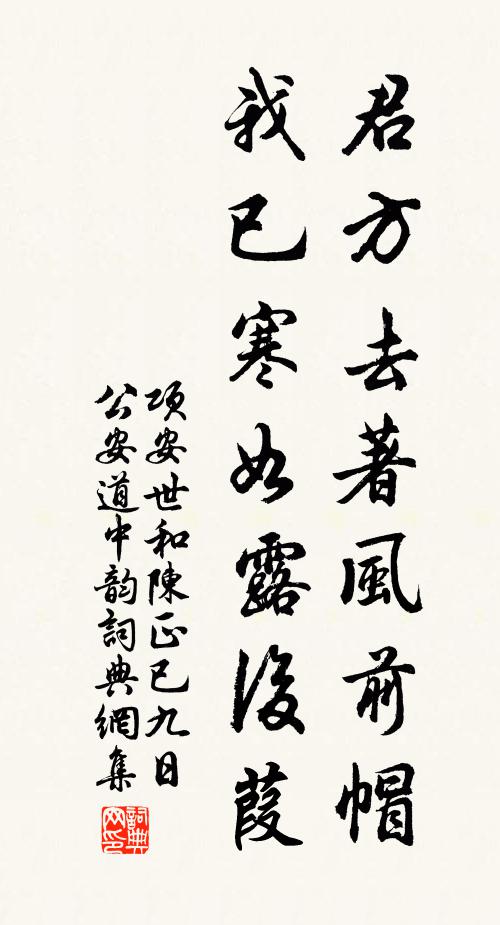 君方去著風前帽
我已寒如露後葭
項安世和陳正已九日
公安道中韵詞典網集
詞典
网印